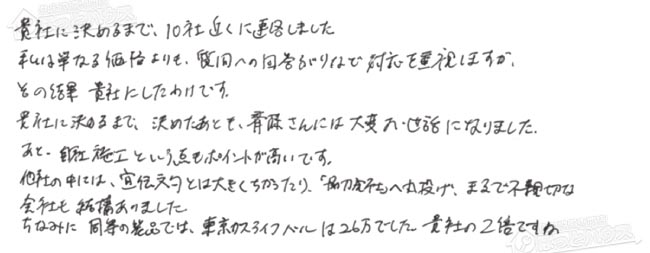 貴社に決めるまで、10社近くに連絡しました
私は単なる価格よりも、質問への回答ぶりなど対応を重視しますが、
その結果 貴社にしたわけです。
貴社に決めるまで、決めたあとも、齊藤さんには大変お世話になりました.
あと、自社施工という点もポイントが高いです。
他社の中には、宣伝文句とは大きくちがったり、「協力会社」へ丸投げ、まるで不親切な
会社も結構ありました
ちなみに 同等の製品では、東京ガスライフバルは26万でした 貴社の2倍ですか